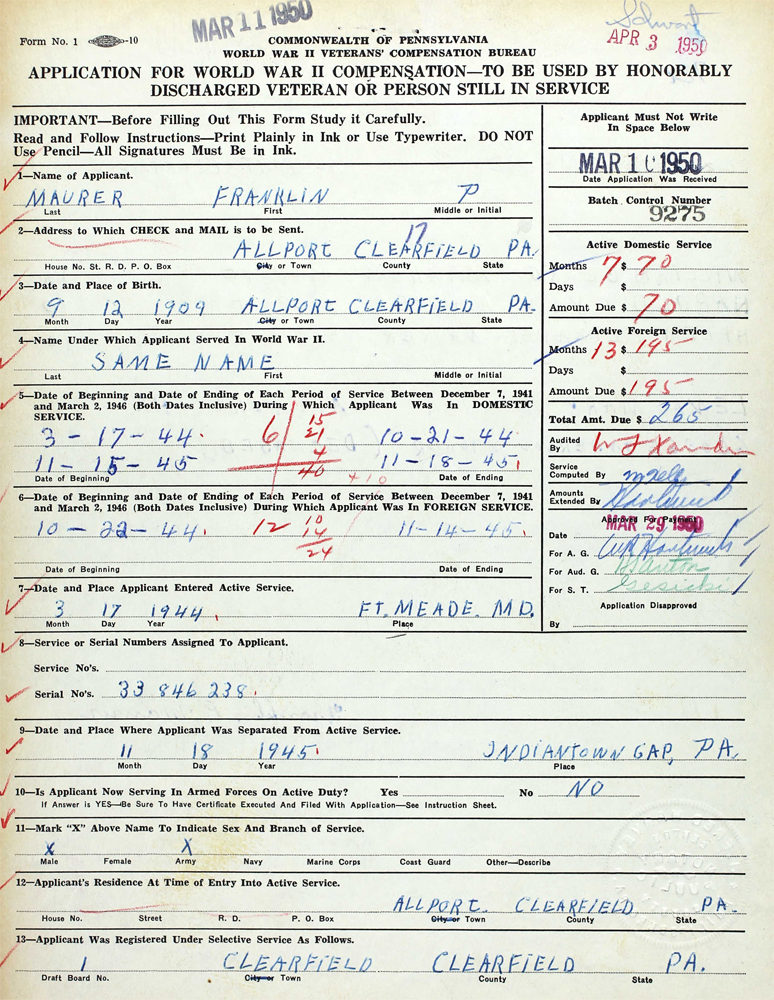 MAR 11 1950
Form No. 1 -10
COMMONWEALTH OF PENNSYLVANIA
APR 3 1950
WORLD WAR II VETERANS' COMPENSATION BUREAU
APPLICATION FOR WORLD WAR II COMPENSATION—TO BE USED BY HONORABLY
DISCHARGED VETERAN OR PERSON STILL IN SERVICE
IMPORTANT—Before Filling Out This Form Study it Carefully.
Read and Follow Instructions—Print Plainly in Ink or Use Typewriter. DO NOT
Use Pencil—All Signatures Must Be in Ink.
Applicant Must Not Write
In Space Below
MAR 10 1950
Date Application Was Received
Batch Control Number
9275
Active Domestic Service
Months 7 $ 70
Days $
Amount Due $ 70
Active Foreign Service
Months 13 $ 195
Days $
Amount Due $ 195
Total Amt. Due $ 265
Audited
By
Service
Computed By
Amounts
Extended By
Approved For Payment
MAR 29 1950
Date
For A. G.
For Aud. G.
For S. T.
Application Disapproved
By
1—Name of Applicant.
MAURER FRANKLIN P
Last First Middle or Initial
2—Address to Which CHECK and MAIL is to be Sent.
17
ALLPORT CLEARFIELD PA.
House No. St. R. D. P. O. Box City or Town County State
3—Date and Place of Birth.
9 12 1909 ALLPORT CLEARFIELD PA.
Month Day Year City or Town County State
4—Name Under Which Applicant Served In World War II.
SAME NAME
Last First Middle or Initial
5—Date of Beginning and Date of Ending of Each Period of Service Between December 7, 1941
and March 2, 1946 (Both Dates Inclusive) During Which Applicant Was In DOMESTIC
SERVICE.
3-17-44. 6 15 21 10-21-44
11-15-45 4 40 11-18-45
Date of Beginning +10 Date of Ending
6—Date of Beginning and Date of Ending of Each Period of Service Between December 7, 1941
and March 2, 1946 (Both Dates Inclusive) During Which Applicant Was In FOREIGN SERVICE.
10-22-44. 12 10 14 24 11-14-45.
Date of Beginning Date of Ending
7—Date and Place Applicant Entered Active Service.
3 17 1944 FT. MEADE. MD.
Month Day Year Place
8—Service or Serial Numbers Assigned To Applicant.
Service No's.
Serial No's. 33 846 238.
9—Date and Place Where Applicant Was Separated From Active Service.
11 18 1945 INDIANTOWN GAP, PA.
Month Day Year Place
10—Is Applicant Now Serving In Armed Forces On Active Duty? Yes No NO
If Answer is YES—Be Sure To Have Certificate Executed And Filed With Application—See Instruction Sheet.
11—Mark "X" Above Name To Indicate Sex And Branch of Service.
X X
Male Female Army Navy Marine Corps Coast Guard Other—Describe
12—Applicant's Residence At Time of Entry Into Active Service.
ALLPORT. CLEARFIELD PA.
House No. Street R. D. P. O. Box City or Town County State
13—Applicant Was Registered Under Selective Service As Follows.
1 CLEARFIELD CLEARFIELD PA.
Draft Board No. City or Town County State